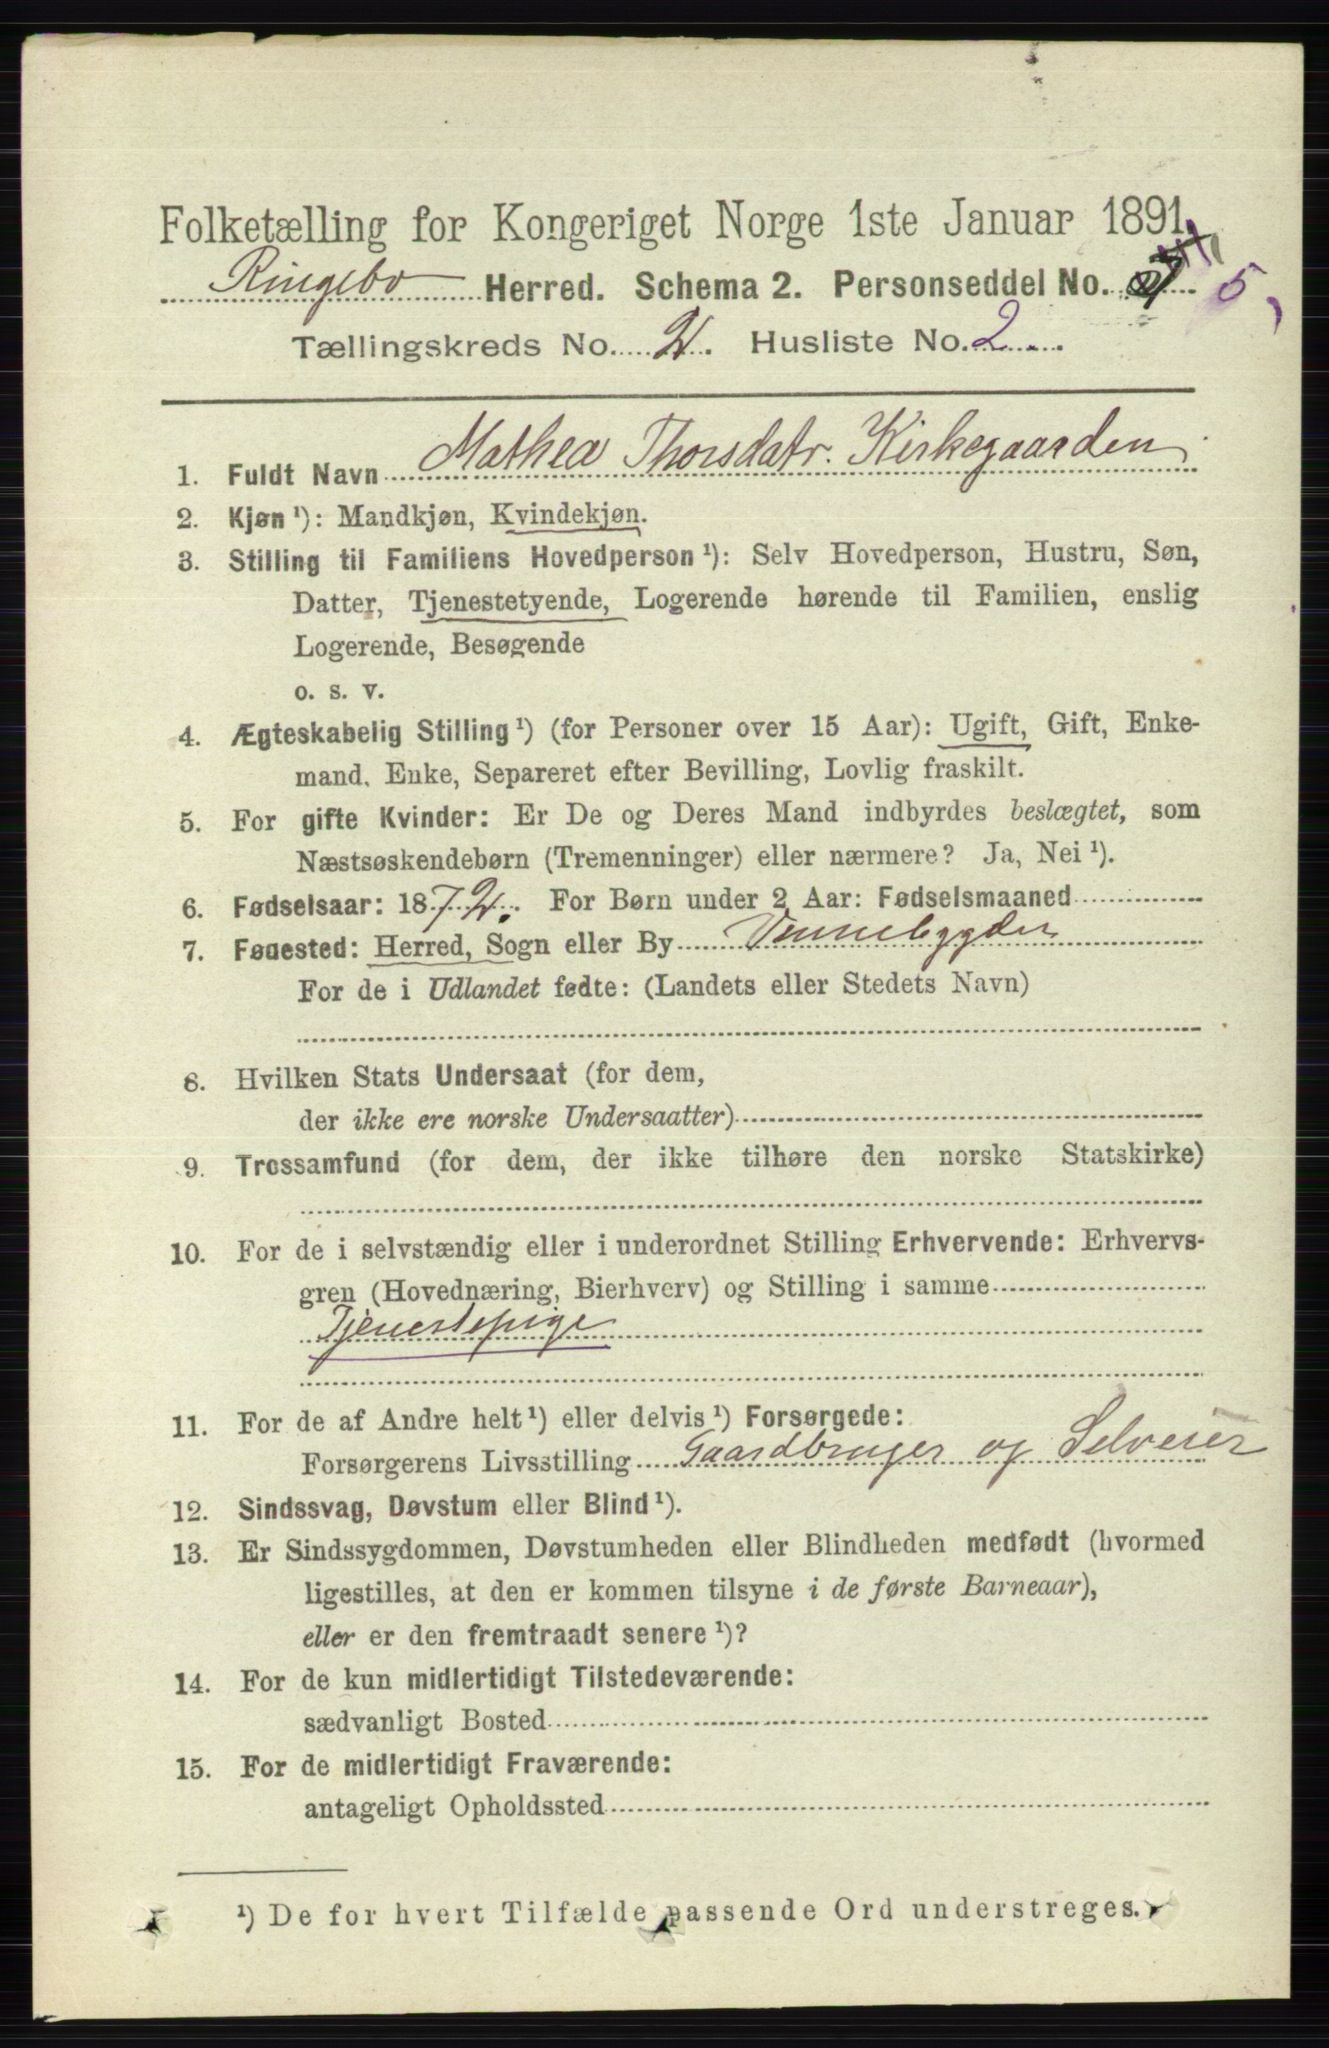 Folketælling for Kongeriget Norge 1ste Januar 1891.
Ringebo Herred. Schema 2. Personseddel No. 5
Tællingskreds No. 2. Husliste No. 2
1. Fuldt Navn Mathea Thorsdatr. Kirkegaarden
2. Kjøn ¹): Mandkjøn, Kvindekjøn.
3. Stilling til Familiens Hovedperson ¹): Selv Hovedperson, Hustru, Søn,
Datter, Tjenestetyende, Logerende hørende til Familien, enslig
Logerende, Besøgende
o. s. v.
4. Ægteskabelig Stilling ¹) (for Personer over 15 Aar): Ugift, Gift, Enke-
mand, Enke, Separeret efter Bevilling, Lovlig fraskilt.
5. For gifte Kvinder: Er De og Deres Mand indbyrdes beslægtet, som
Næstsøskendebørn (Tremenninger) eller nærmere? Ja, Nei ¹).
6. Fødselsaar: 1872. For Børn under 2 Aar: Fødselsmaaned
7. Fødested: Herred, Sogn eller By Vennebygden
For de i Udlandet fødte: (Landets eller Stedets Navn)
8. Hvilken Stats Undersaat (for dem,
der ikke ere norske Undersaatter)
9. Trossamfund (for dem, der ikke tilhøre den norske Statskirke)
10. For de i selvstændig eller i underordnet Stilling Erhvervende: Erhvervs-
gren (Hovednæring, Bierhverv) og Stilling i samme
Tjenestepige
11. For de af Andre helt ¹) eller delvis ¹) Forsørgede:
Forsørgerens Livsstilling Gaardbruger og Selveier
12. Sindssvag, Døvstum eller Blind ¹).
13. Er Sindssygdommen, Døvstumheden eller Blindheden medfødt (hvormed
ligestilles, at den er kommen tilsyne i de første Barneaar),
eller er den fremtraadt senere ¹)?
14. For de kun midlertidigt Tilstedeværende:
sædvanligt Bosted
15. For de midlertidigt Fraværende:
antageligt Opholdssted
¹) De for hvert Tilfælde passende Ord understreges.